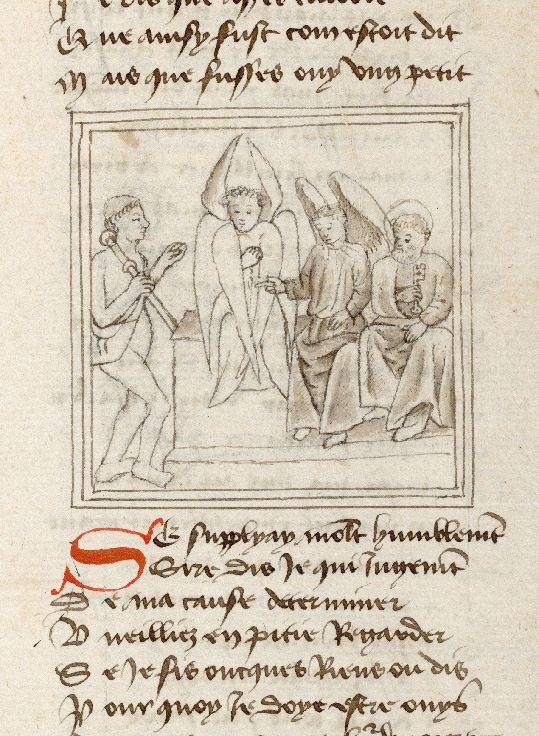 Que ainsy fust com estoit dit
Mais que fusses ouy vng petit
Se supplyay molt humblemt
Sire dis Je qui Jugemt
De ma cause determiner
Vueilliez en pitie Regarder
Se Je fis oncques Riens ou dis
Pour quoy Je doye estre ouys